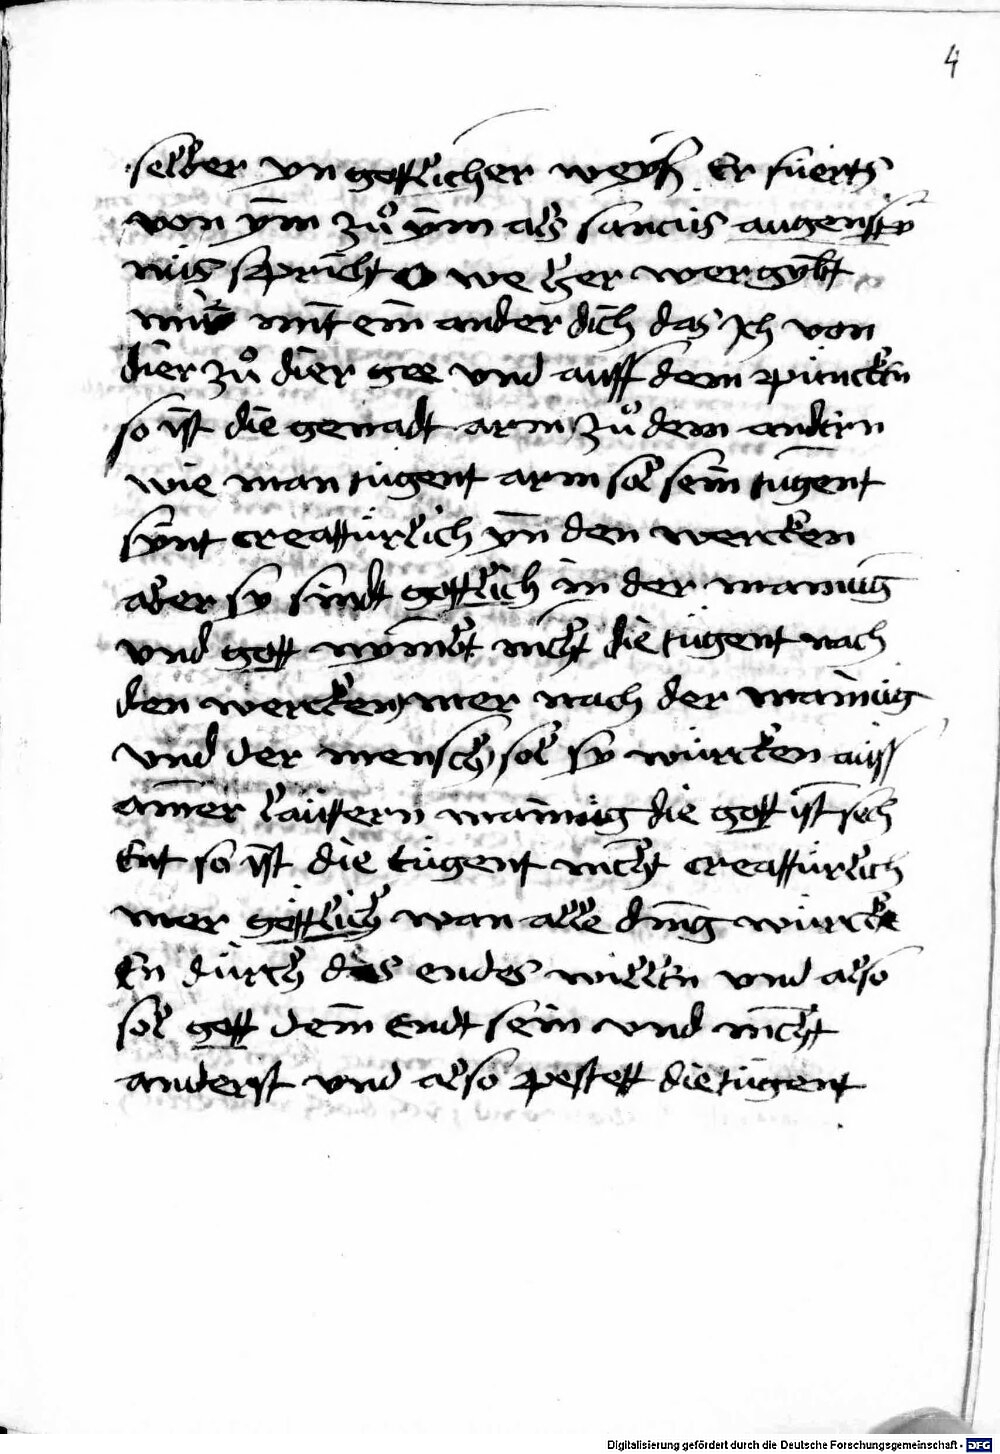 4
selber yn gotlicher weyß Er fűerts
von ym̄ zů ym̄ als sanctűs augensty
nűs spricht O we herr wer gybt
mir nűt eīn ander dich das Jch von
dier zů dier gee vnd auff dem pűnckt
so ist die genadt arm zů dem andern
wie man tűgent arm sol sein tűgent
synt creattűrlich yn den wercken
aber sy sindt gottlich in der mainung
vnd gott nymbt nicht die tűgent nach
den wercken mer nach der mainűg
vnd der mensch sol sy wűrcken aűß
ainer laűttern mainűg die gott ist sech
Ent so ist die tűgent nicht creattűrlich
mer göttlich wan alle ding wűrck
En dűrch das endes willen vnd also
sol gott dein Endt sein vnd nicht
anderst vnd also pestett die tűgent
Digitalisierung gefördert durch die Deutsche Forschungsgemeinschaft - DFG